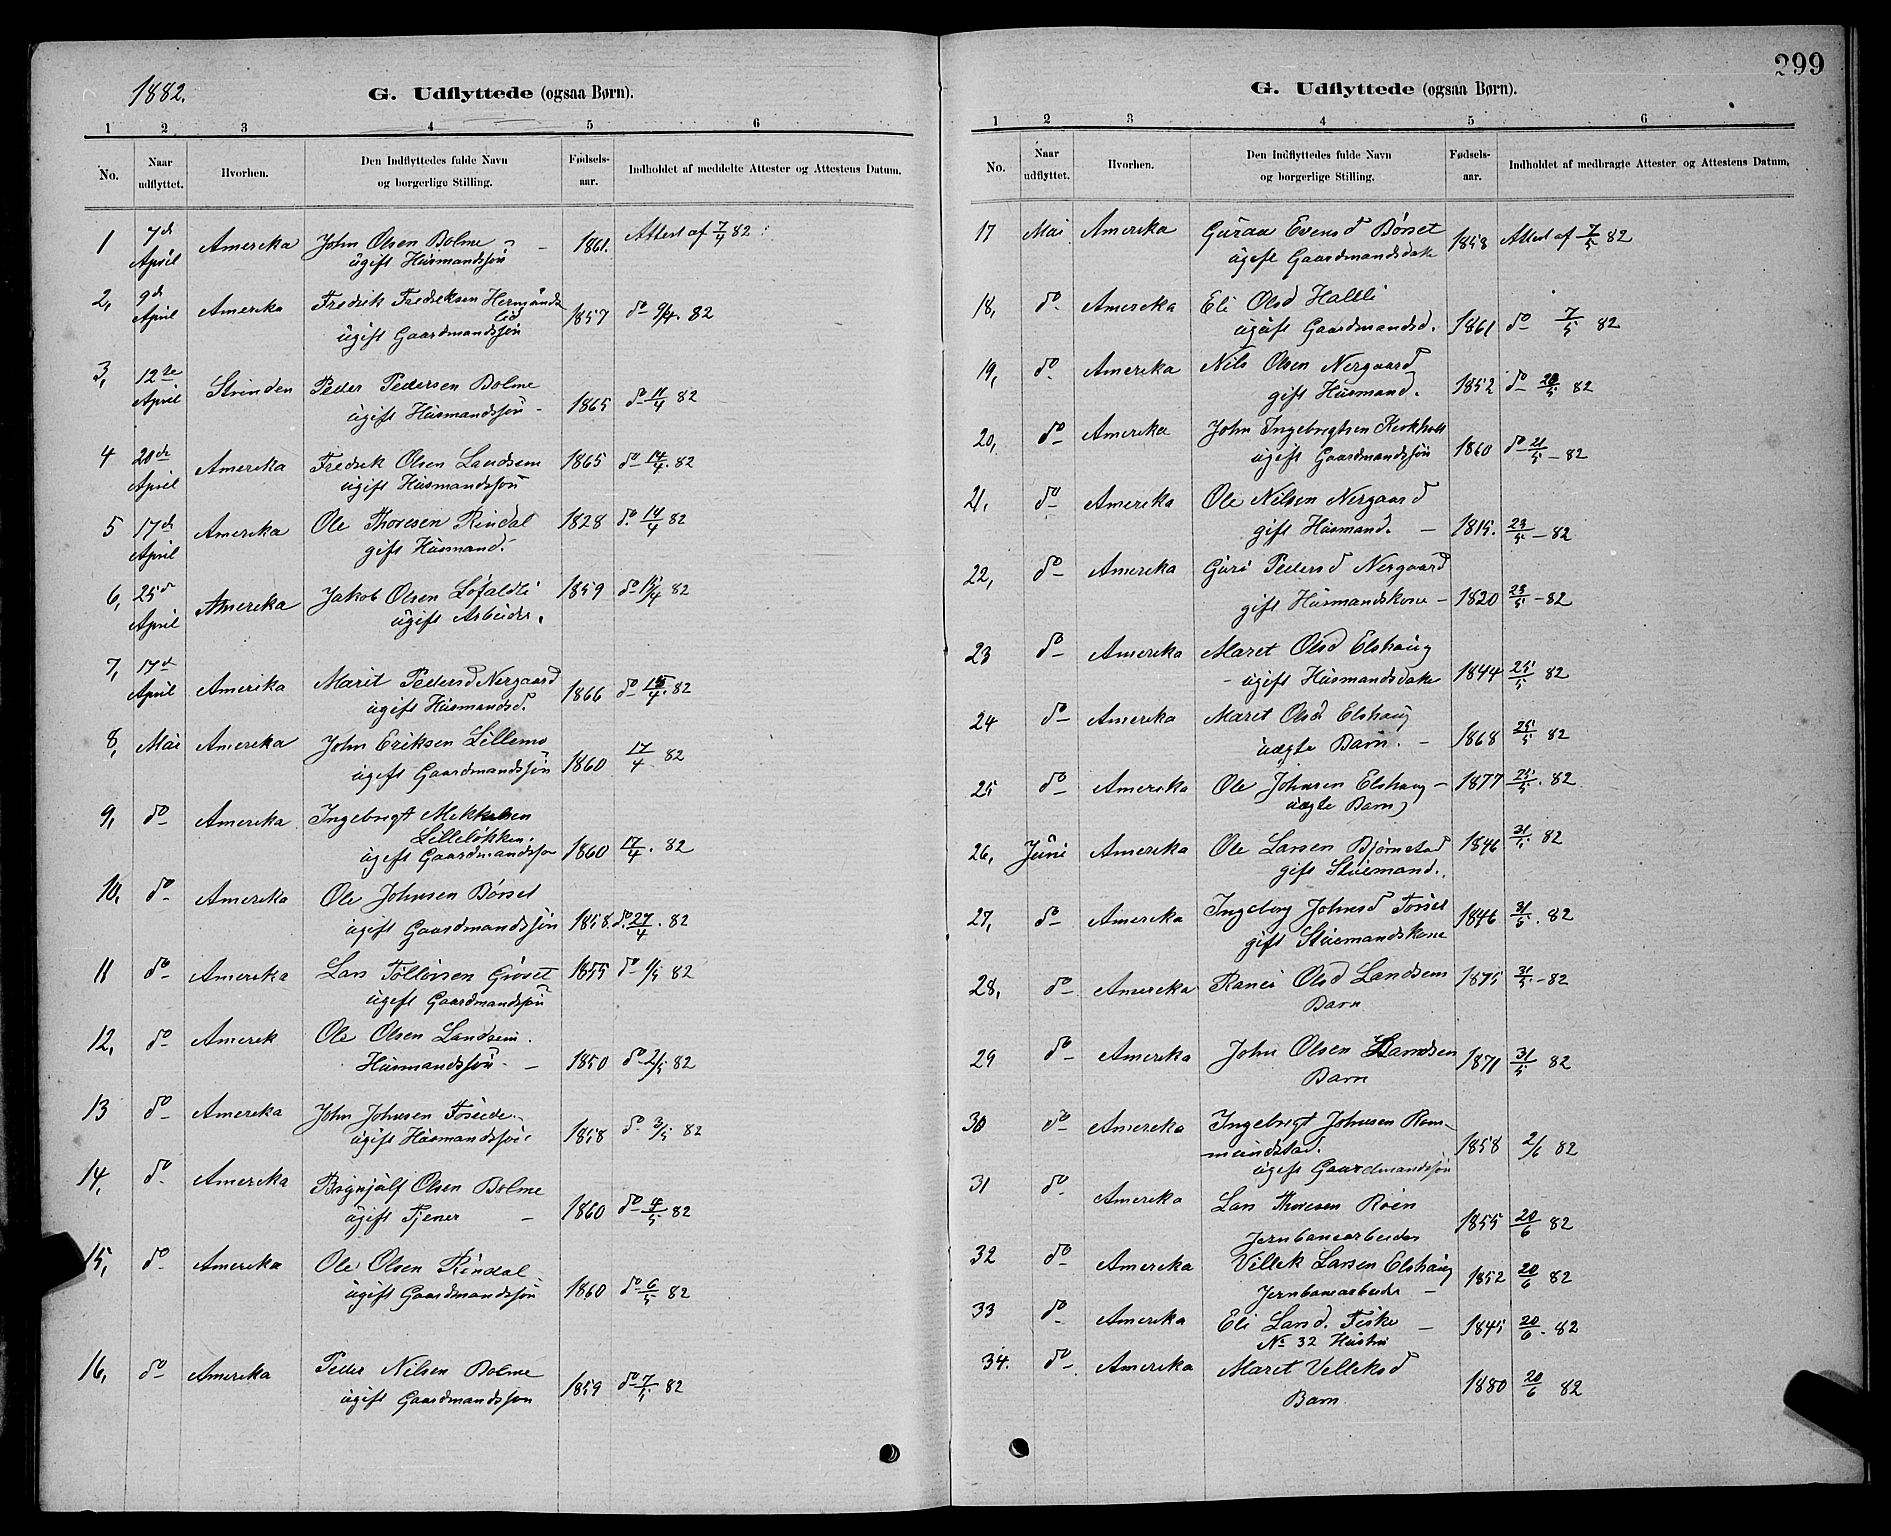 1882.
G. Udflyttede (ogsaa Børn).
1 2 3 4 5 6
No. Naar udflyttet. Hvorhen. Den Indflyttedes fulde Navn og borgerlige Stilling. Fødsels-aar. Indholdet af meddelte Attester og Attestens Datum.
1 7d April Amerika John Olsen Bolme 1861. Attest af 7/4 82
ugift Husmandssøn
2, 9d April Amerika Fredrik Fredriksen Hermands
lid 1857 do 9/4. 82
ugift Gaardmandssøn
3, 12te April Strinden Peder Pedersen Bolme
ugift Husmandssøn - 1865 do 11/4 82
4 20de April Amerika Fredrik Olsen Landsem 1865 do 14/4. 82
ugift Husmandssøn
5 17d April Amerika Ole Thoresen Rindal 1828 do 14/4 82
gift Husmand.
6, 25d April Amerika Jakob Olsen Løfaldli 1859 do 15/4 82
ugift Arbeider.
7, 17d April Amerika Marit Pedersd Nergaard
ugift Husmandsd. 1866 do 15/4. 82
8, Mai Amerika John Eriksen Lillemo
ugift Gaardmandssøn 1860 17/4 82
9, do Amerika Ingebrigt Mikkelsen
Lilleløkken.
ugift Gaardmandssøn 1860 17/4. 82
10, do Amerika Ole Johnsen Børset
ugift Gaardmandssøn 1858. do. 27/4. 82
11 do Amerika Lars Tøllevsen Grøset 1855 do 1/5 82
ugift Gaardmandssøn
12, do Amerik Ole Olsen Landsem.
Husmandssøn - 1850 do 2/5 82
13 do Amerika John Johnsen Foseide
ugift Husmandssøn 1858 do 3/5 82
14, do. Amerika Brynjulf Olsen Bolme
ugift Tjener - 1860 do 4/5 82
15, do Amerika Ole Olsen Rindal
ugift Gaardmandssøn 1860 do 6/5 82
16, do Amerika Peder Nilsen Bolme
ugift Gaardmandssøn 1859 do 7/5. 82
299
G. Udflyttede (ogsaa Børn).
1 2 3 4 5 6
No. Naar udflyttet. Hvorhen. Den Indflyttedes fulde Navn og borgerlige Stilling. Fødsels-aar. Indholdet af medbragte Attester og Attestens Datum.
17 Mai Amerika Guraa Evensd Børset
ugift Gaardmandsdate 1858 Attest af 7/5 82
18, do Amerika Eli Olsd Haltli
ugift Gaardmandsd. 1861 do 7/5 82
19, do Amerika Nils Olsen Nergaard
gift Husmand. 1852 do 20/5 82
20, do Amerika John Ingebrigtsen Kirkholt
ugift Gaardmandssøn 1860 do 21/5 - 82
21, do Amerika Ole Nilsen Nergaard
gift Husmand. - 1815. 23/5 - 82
22, do Amerika Guri Pedersd Nergaard
gift Husmandskone - 1820 23/5 - 82
23 do Amerika Maret Olsd Elshaug
- ugift Husmandsdate 1844 25/5 82
24 do Amerika Maret Olsd Elshaug
uægte Barn. - 1868 25/5 82
25 do Amerika Ole Johnsen Elshaug - 1877 25/5. 82
uægte Barn
26, Juni Amerika Ole Larsen Bjørnstad 1846 31/5 82
gift Stuemand.
27, do Amerika Ingeborg Johnsd 1846 31/5. 82
gift Stuemandskone
28, do Amerika Ranei Olsd Landsem 1875 31/5 - 82
Barn
29 do Amerika John Olsen Landsem 1871 31/5 82
Barn
30 do Amerika Ingebrigt Johnsen Rom-
mundstad. 1858 2/6 82
ugift Gaardmandssøn
31 do Amerika Lars Thoresen Røen 1855 20/6 82
Jernbanearbeider
32 do Amerika Villek Larsen Elshaug 1852 20/6 82
Jernbanearbeider -
33 do Amerika Eli Larsd. Fiske - 1845 20/6. 82
No 32 Hustru
34. do Amerika Maret Villeksd
Barn 1880 20/6 82